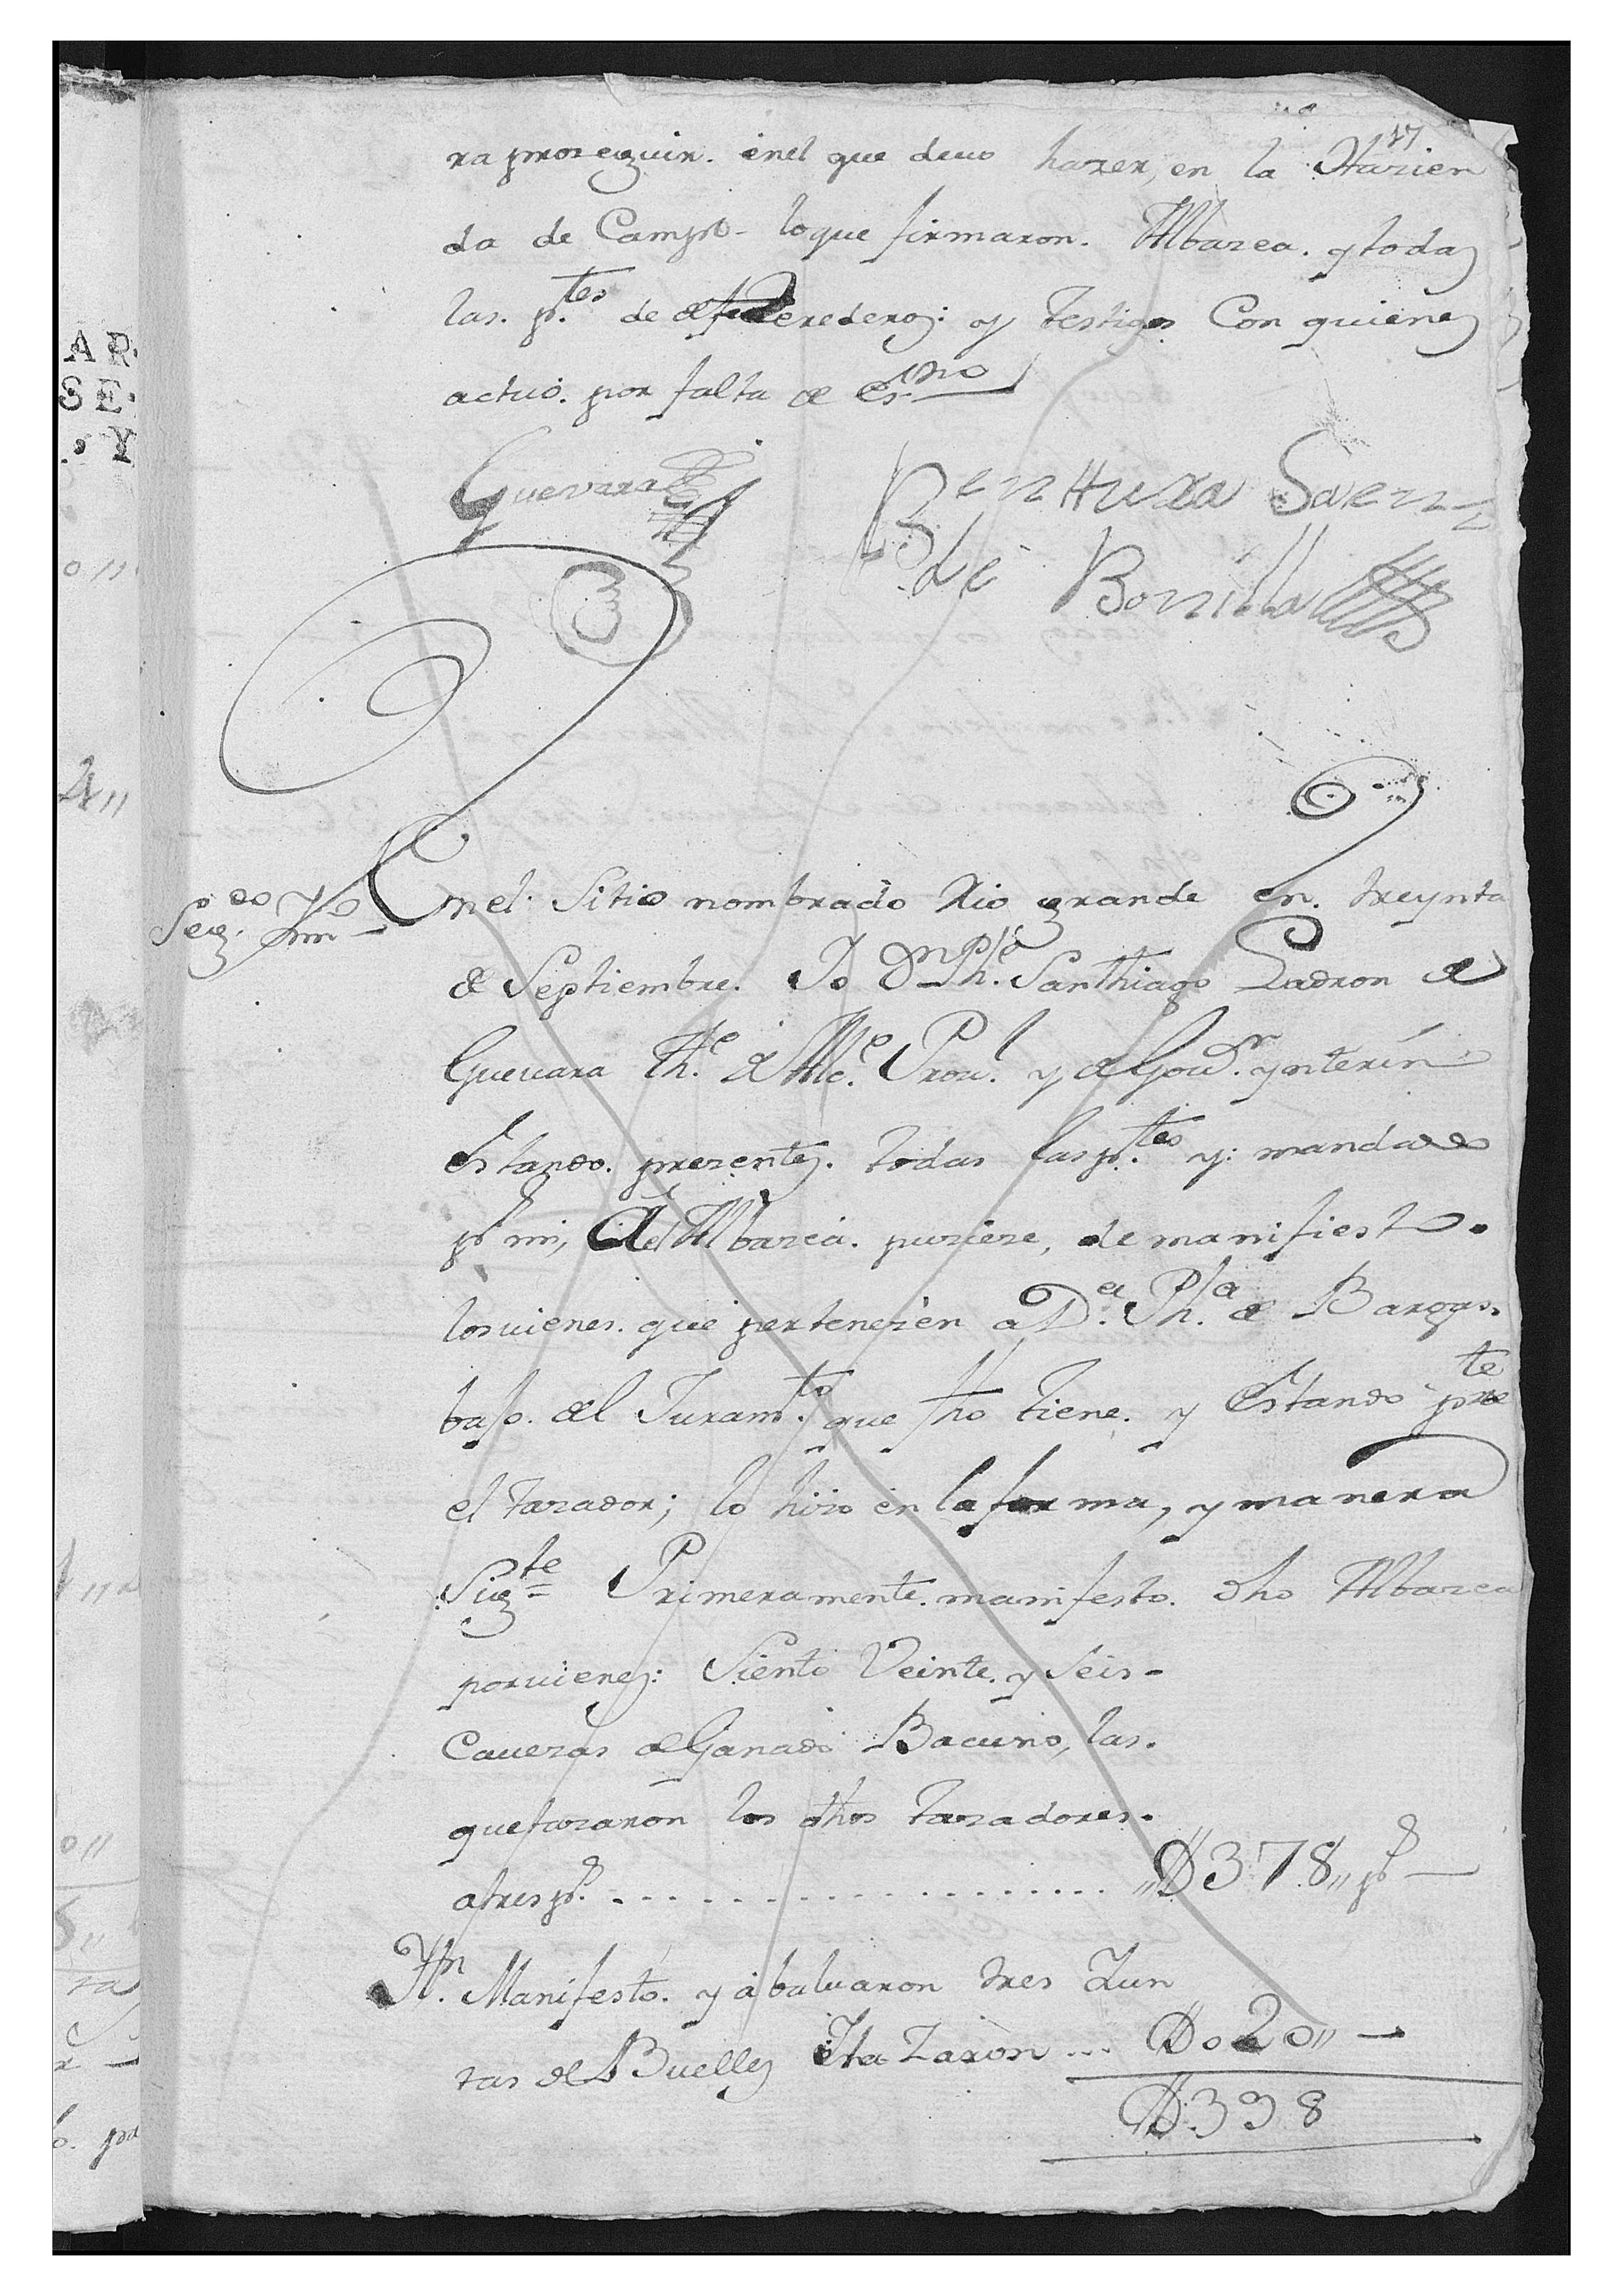 17
ra proseguir. enel que devo hazer, en la Hazien
da de Campo - loque firmaron. Albazea. y todas
las. p.tes de herederos: y testigos Con quienes
actuó. por falta de Es.no
Guevara
Benttura Saenz
de Bonilla
Seg.do Ynn.o
Enel Sitio nombrado Rio grande en. treynta
de Septiembre. Yo Dn Ph.e Santhiago Ladron de
Guevara Th.e de Alc.e Prov.l y de Gov.r ynterín
Estando. prezentes. todas las p.tes y: mandado
pr mi, Al Albazea. puziese, de manifiesto.
los vienes. que pertenezen a D.a Ph.a de Bargas.
baxo. del Juram.to que hó tiene. y Estando pre.te
el tazador; lo hizo en la forma, y manera
Sig.te Primeramente. manifesto. dho Albazea
por vienes: Siento Veinte. y Seis -
Cavezas de Ganado Bacuno, las.
que tazaron los dhos tazadores.
a tres ps. .................... D378,, ps
Ytn. Manifesto. y abaluaron tres Yun
tas de Bueyes tazaron ... Do20,, -
D398
AR
SE.
. Y
0 //